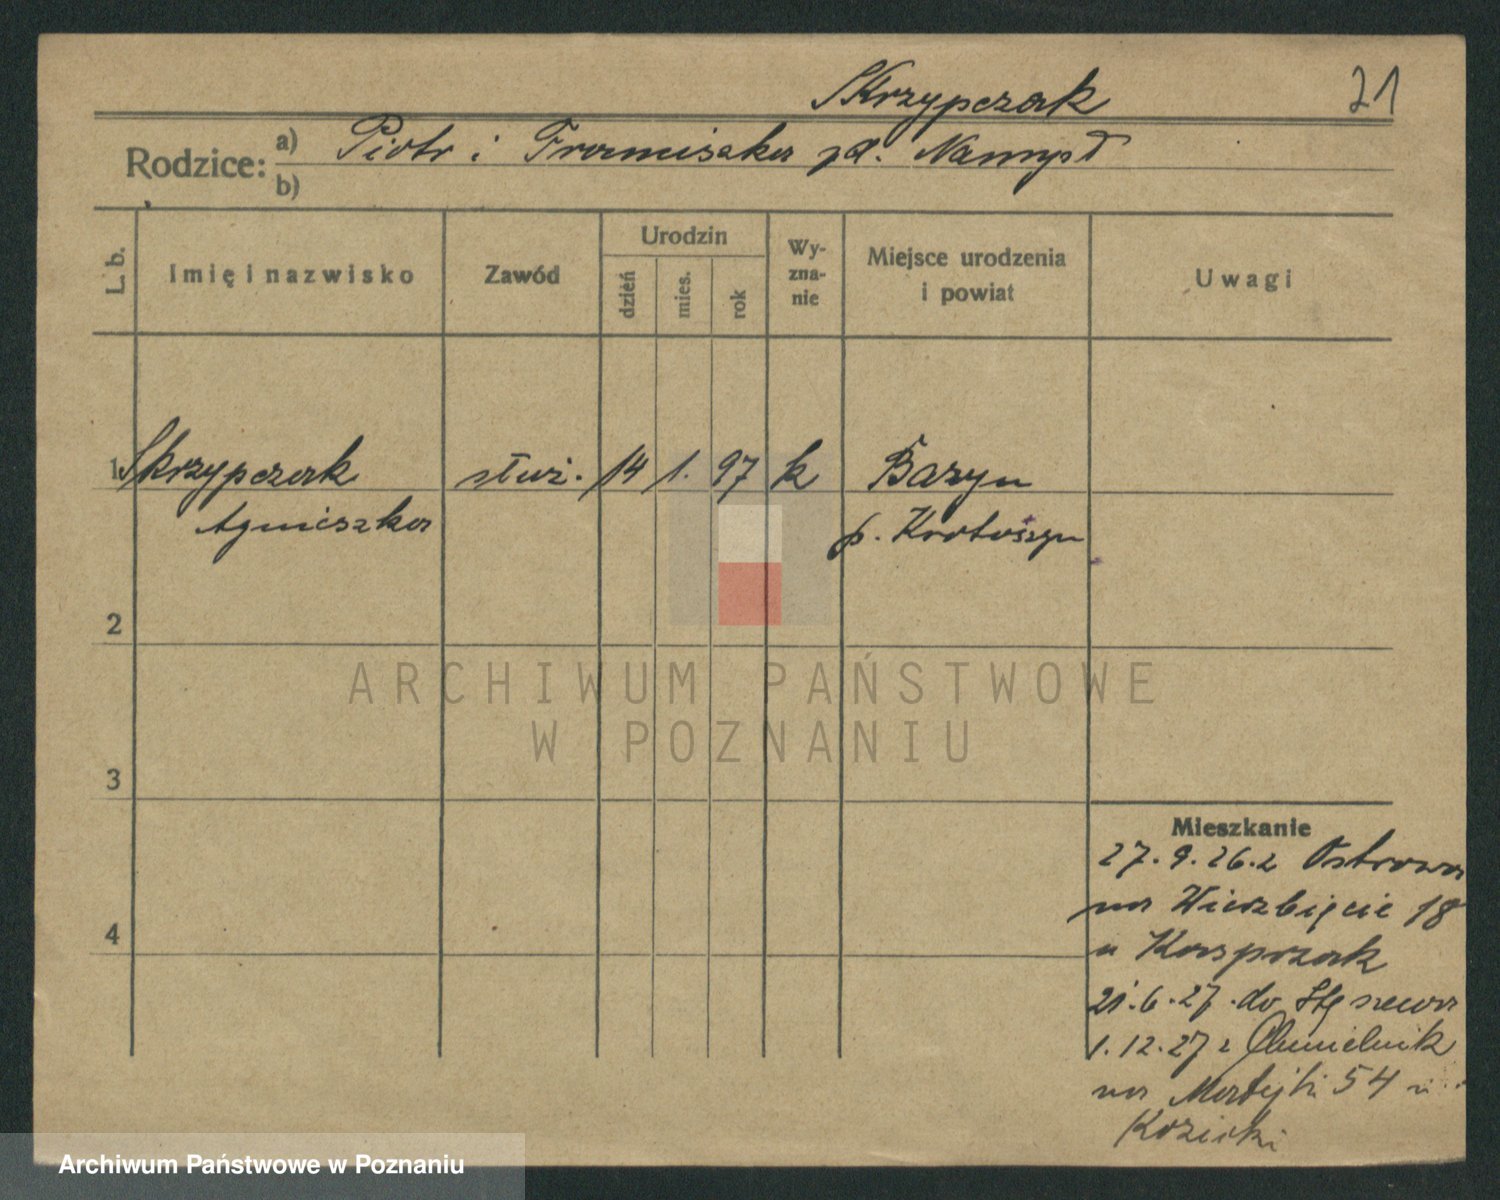 Skrzypczak
21
Rodzice: a) Piotr i Franciszka zd. Namysł
b)
L. b.
Imię i nazwisko
Zawód
Urodzin
dzień
mies.
rok
Wy-
zna-
nie
Miejsce urodzenia
i powiat
Uwagi
1 Skrzypczak służ. 14 1. 97 k Bazyn
Agnieszka p. Krotoszyn
2
3
4
Mieszkanie
27.9.26. z Ostrowa
na Wierzbięcie 18
u Kasprzak
21.6.27. do Stęszewa
1.12.27 z Chmielnik
na Matejki 54 u
Kozicki
ARCHIWUM PAŃSTWOWE
W POZNANIU
Archiwum Państwowe w Poznaniu